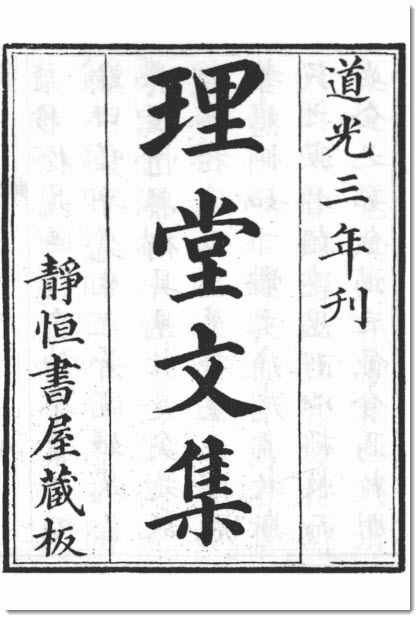 道光三年刊
理堂文集
靜恒書屋藏板